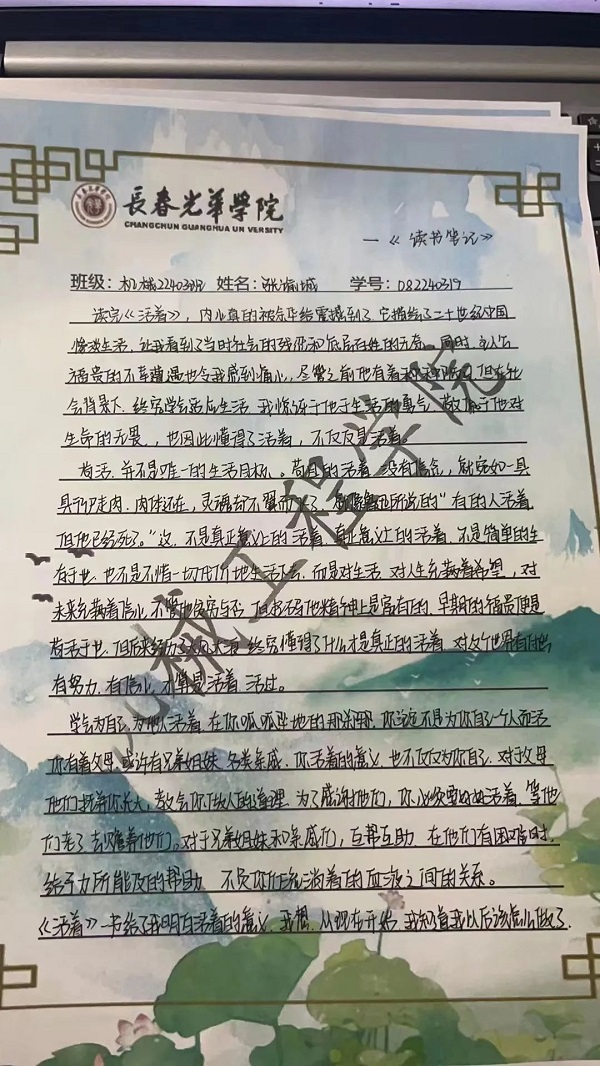 長春光華學院
CHANGCHUN GUANGHUA UN VERSITY
—《读书笔记》
班级：机械22403班 姓名：张瀚城 学号：D82240319
读完《活着》，内心真的被余华给震撼到了，它描绘了二十世纪中国
惨淡生活，让我看到了当时社会的残酷和底层百姓的无奈，同时，主人公
福贵的不幸遭遇也令我感到痛心，尽管之前他有着 但在社
会背景下，终究学会适应生活，我惊讶于他于生活的勇气，敬佩于他对
生命的无畏，也因此懂得了活着，不仅仅是活着。
苟活，并不是唯一的生活目标。苟且的活着，没有信念，就宛如一具
具行尸走肉，肉体还在，灵魂却不翼而飞了，就像鲁迅所说的“有的人活着，
但他已经死了。”这，不是真正意义上的活着，真正意义上的活着，不是简单的生
存于世，也不是不惜一切代价地生活下去，而是对生活，对人生充满着希望，对
未来充满着信心，不管他贫穷与否，但书码他精神上是富有的，早期的福贵便是
苟活于世，但后来经历 终究懂得了什么才是真正的活着，对这个世界有付出
有努力，有信心，才算是活着，活过。
学会为自己，为他人活着，在你呱呱坠地的那刹那，你注定不是为你自己一个人而活
你有着父母，或许有兄弟姐妹，各类亲戚，你活着的意义，也不仅仅为你自己，对于父母
他们抚养你长大，教会你做人的道理，为了感谢他们，你必须要好好活着，等他
们老了去赡养他们。对于兄弟姐妹和亲戚们，互帮互助，在他们有困难时，
给予力所能及的帮助，不负你们 淌着的血液之间的关系。
《活着》一书给了我明白活着的意义，我想，从现在开始，我知道我以后该怎么做了.
机械工程学院